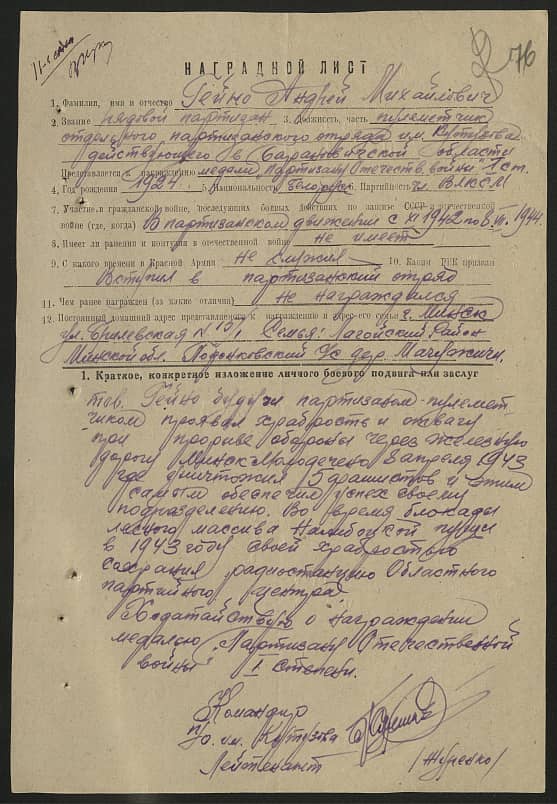 76
НАГРАДНОЙ ЛИСТ
1. Фамилия, имя и отчество Гейно Андрей Михайлович
2. Звание рядовой партизан 3. Должность, часть пулеметчик
отдельного партизанского отряда им. Кутузова
действующего в Барановичской области
Представляется к награждению медали „Партизану Отечеств. войны" 1 ст.
4. Год рождения 1924. 5. Национальность Белорус 6. Партийность чл. ВЛКСМ
7. Участие в гражданской войне, последующих боевых действиях по защите СССР и отечественной
войне (где, когда) В партизанском движении с XI 1942 по 8.VII.1944.
8. Имеет ли ранения и контузии в отечественной войне не имеет
9. С какого времени в Красной Армии не служил 10. Каким РВК призван
Вступил в партизанский отряд
11. Чем ранее награжден (за какие отличия) не награждался
12. Постоянный домашний адрес представляемого к награждению и адрес его семьи г. Минск
ул. Брилевская N Семья: Логойский район
Минской обл. с/с дер. Мачужичи.
1. Краткое, конкретное изложение личного боевого подвига или заслуг
тов. Гейно будучи партизаном-пулемет-
чиком проявил храбрость и отвагу
при прорыве обороны через железную
дорогу Минск-Молодечено 8 апреля 1943
где уничтожил 5 фашистов и этим
самым обеспечил успех своему
подразделению. Во время блокады
лесного массива Налибоцкой пущи
в 1943 году своей храбростью
сохранил радиостанцию Областного
партийного центра.
Ходатайствую о награждении
медалью „Партизану Отечественной
войны" I степени.
Командир
п/о им. Кутузова
Лейтенант /Журенко/